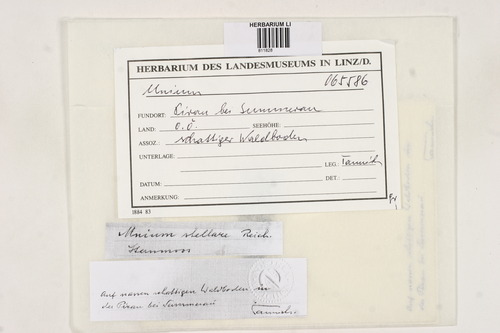 HERBARIUM LI
811828
HERBARIUM DES LANDESMUSEUMS IN LINZ/D.
Mnium 065586
FUNDORT: Pirau bei Summerau
LAND: O.Ö. SEEHÖHE:
ASSOZ.: schattiger Waldboden
UNTERLAGE: LEG.:
DATUM: DET.:
ANMERKUNG:
1884 83
Mnium stellare Reich.
Auf nassem schattigen Waldboden in
der Pirau bei Summerau